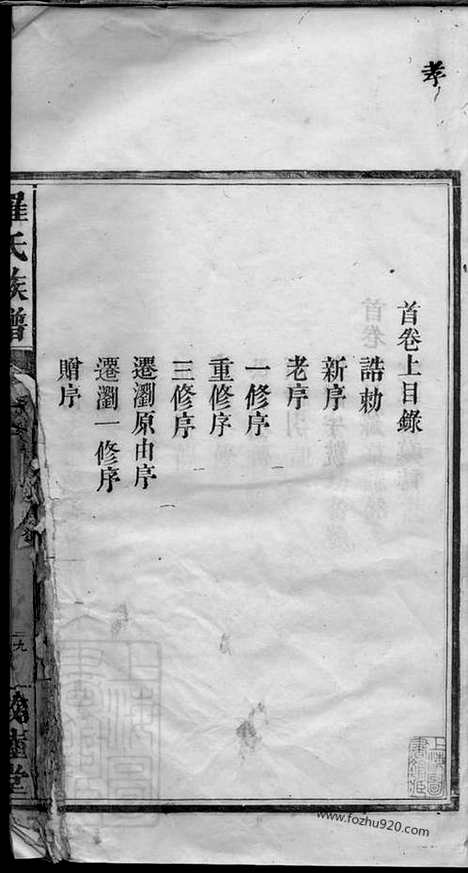 孝
首卷上目錄
誥勅
新序
老序
一修序
重修序
三修序
遷瀏原由序
遷瀏一修序
贈序
羅氏族譜
九
堂
www.fozhu920.com